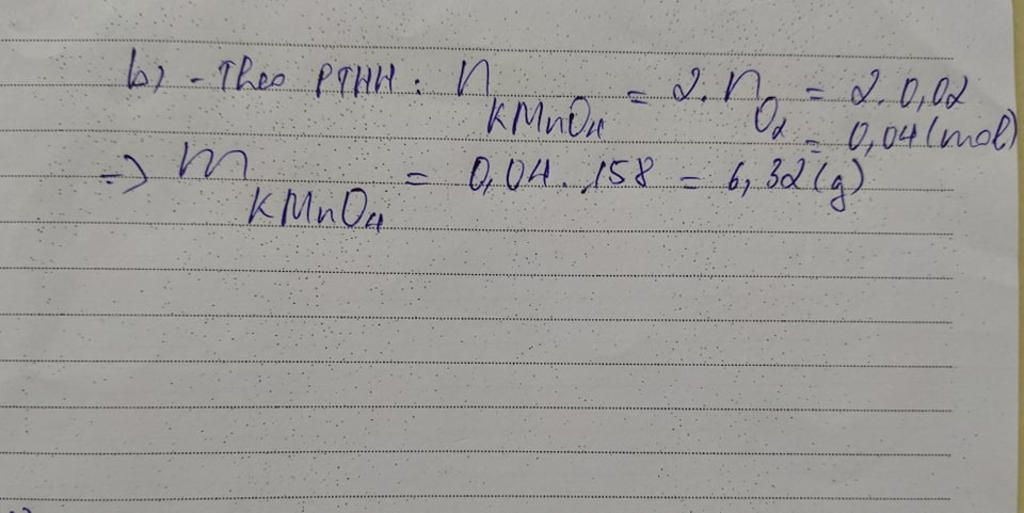 b) - Theo PTHH : n KMnO4 = 2. n O2 = 2. 0,02
= 0,04 (mol)
=> m KMnO4 = 0,04. 158 = 6,32 (g)